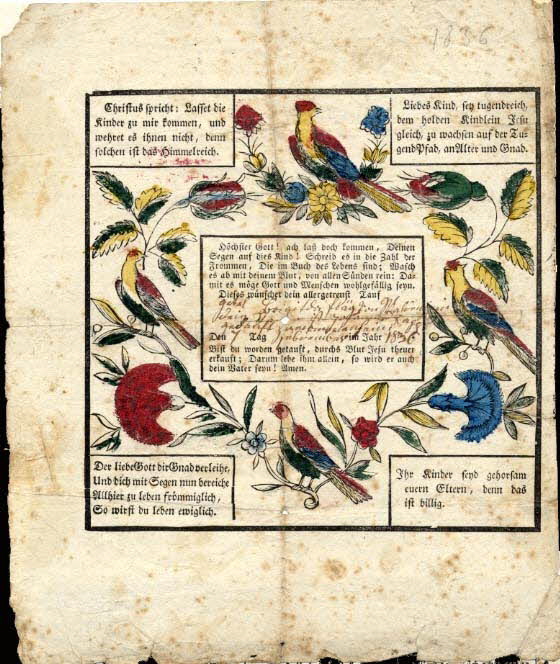 1836
Christus spricht: Lasset die
Kinder zu mir kommen, und
wehret es ihnen nicht, denn
solchen ist das Himmelreich.
Liebes Kind, sey tugendreich,
dem holden Kindlein Jesu
gleich, zu wachsen auf der Tu-
gend Pfad, an Alter und Gnad.
Höchster Gott! ach laß doch kommen, Deinen
Segen auf dies Kind! Schreib es in die Zahl der
Frommen, Die im Buch des Lebens sind; Wasch
es ab mit deinem Blut, von allen Sünden rein: Da-
mit es möge Gott und Menschen wohlgefällig seyn.
Dieses wünschet dein allergetreust Tauf
getauft
Den Tag im Jahr 1836
Bist du worden getauft, durchs Blut Jesu theuer
erkauft; Darum lebe ihm allein, so wird er auch
dein Vater seyn! Amen.
Der liebe Gott dir Gnad verleihe,
Und dich mit Segen nun bereiche
Allhier zu leben frömmiglich,
So wirst du leben ewiglich.
Ihr Kinder seyd gehorsam
euern Eltern, denn das
ist billig.